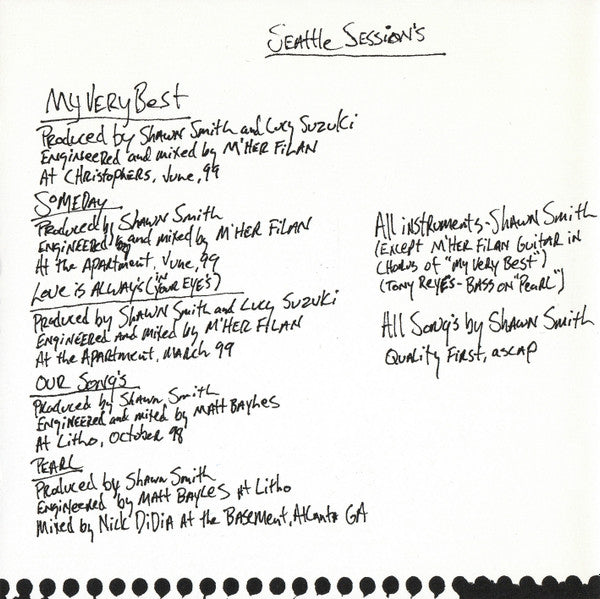 Seattle Session's
My Very Best
Produced by Shawn Smith and Lucy Suzuki
Engineered and mixed by M'Her Filan
At Christophers, June, 99
Someday
Produced by Shawn Smith
Engineered and mixed by M'Her Filan
At the Apartment, June, 99
Love is Always (in your Eye's)
Produced by Shawn Smith and Lucy Suzuki
Engineered and mixed by M'Her Filan
At the Apartment, March 99
Our Song's
Produced by Shawn Smith
Engineered and mixed by Matt Bayles
At Litho, October 98
Pearl
Produced by Shawn Smith
Engineered by Matt Bayles At Litho
Mixed by Nick DiDia At the Basement, Atlanta GA
All instruments - Shawn Smith
(Except M'Her Filan Guitar in
Chorus of "My Very Best")
(Tony Reyes - Bass on "Pearl")
All Song's by Shawn Smith
Quality First, ascap